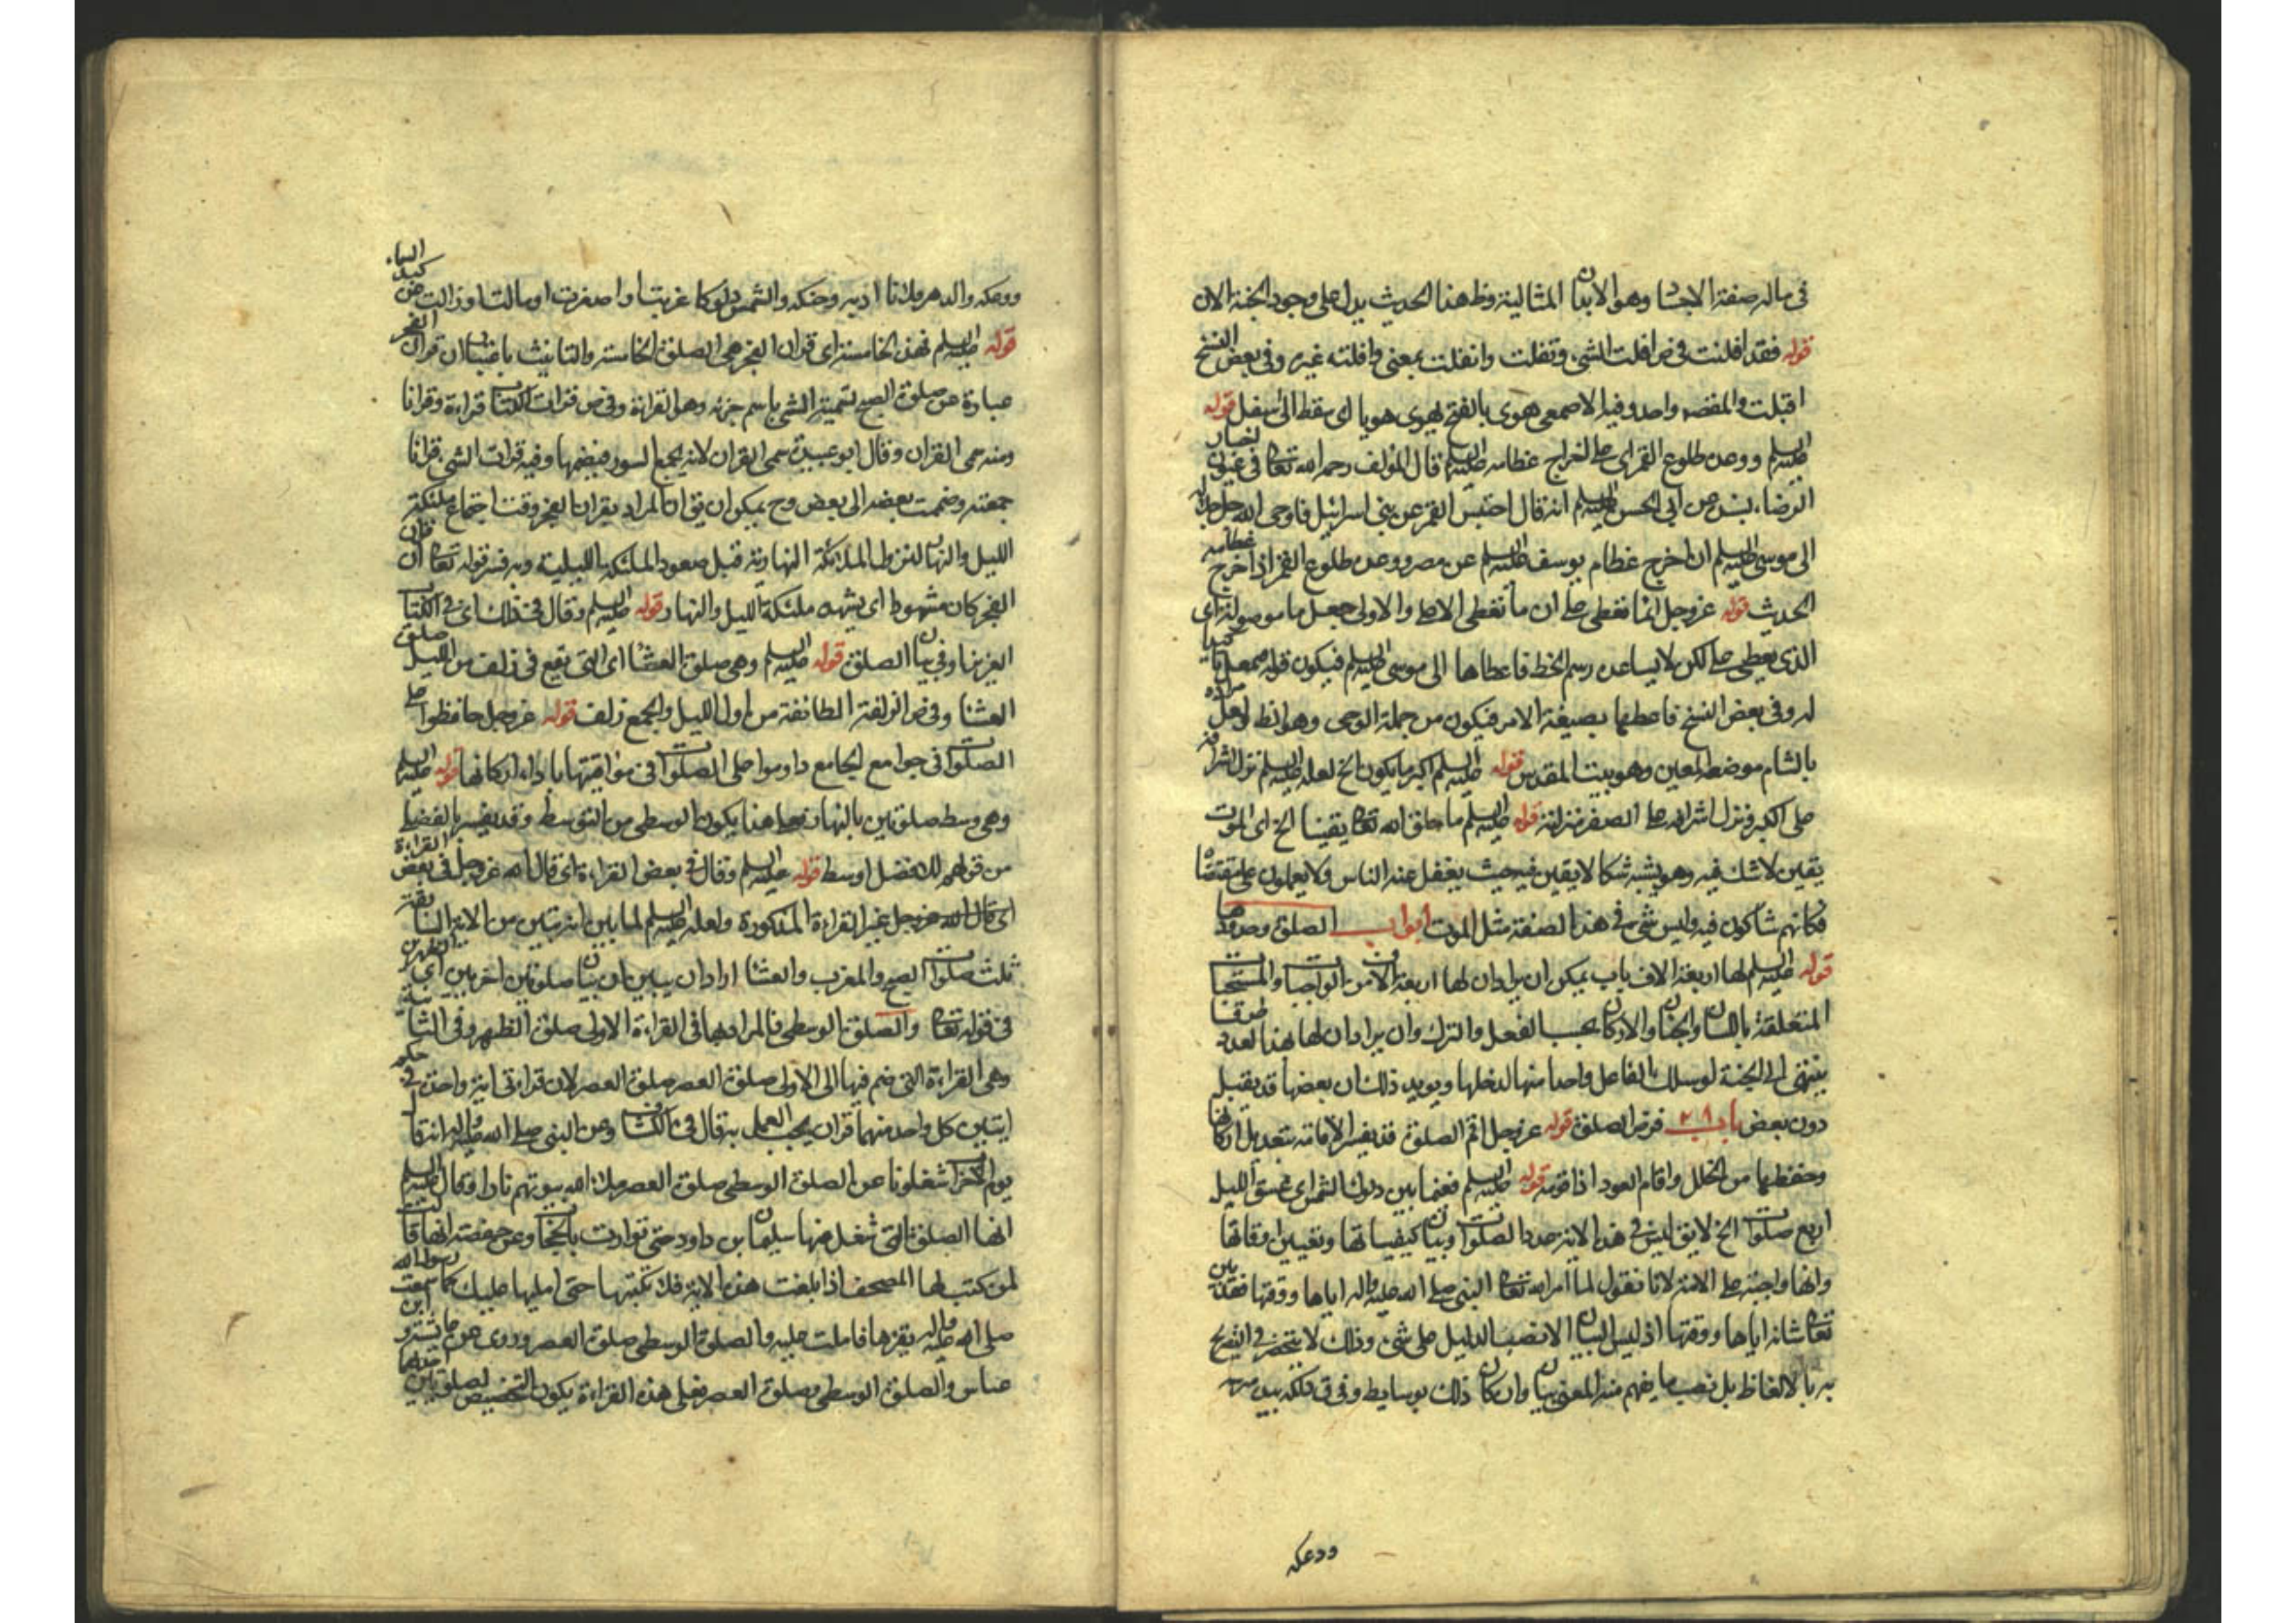 في ماله صفة الاجساد وهو الابدان المثالية وظ هذا الحديث يدل على وجود الجنة الان
قوله فقد افلتت في ص افلت الشيء وتفلت وانفلت بمعنى وافلته غيره وفي بعض النسخ
اقبلت والمقصد واحد وفيه الاصمعي هوى بالفتح يهوي هويا اى سقط الى اسفل قوله
عليه السلم ووعده طلوع القمر اى على اخراج عظامه عليه السلم قال المؤلف رحمه الله تعالى في عيون اخبار
الرضا بسنده عن ابي الحسن عليه السلم انه قال احتبس القمر عن بني اسرائيل فاوحى الله جل جلاله
الى موسى عليه السلم ان اخرج عظام يوسف عليه السلم عن مصر ووعده طلوع القمر اذا اخرج عظامه
الحديث قوله عز وجل انما تعطى على ان ما تعطى الاصل والاولى جعل ما موصولة اى
الذي يعطى على لكن لا يساعده رسم الخط فاعطاها الى موسى عليه السلم فيكون قوله
له وفي بعض النسخ فاعطها بصيغة الامر فيكون من جملة الوحي وهو الظ ولعل مراده
بالشام موضعه المعين وهو بيت المقدس قوله عليه السلم اكبر ما يكون الخ لعله عليه السلم نزل الشرافة
على الكبر ونزل اشرافه على الصغر منزلته قوله عليه السلم ما خلق الله تعالى يقينا الخ اى الموت
يقين لا شك فيه وهو يشبه شكا لا يقين فيه حيث يغفل عنه الناس ولا يعملون على مقتضاه
فكانهم شاكون فيه وليس شيء في هذه الصفة مثل الموت ابواب الصلوة وحدودها
قوله عليه السلم لها اربعة الاف باب يمكن ان يراد ان لها اربعة الاف من الواجبات والمستحبات
المتعلقة باللسان والجنان والاركان بحسب الفعل والترك وان يراد ان لها هذا العدد طرقا
ينتهي الى الجنة لو سلك بالفاعل واحدا منها لدخلها ويؤيد ذلك ان بعضها قد يقبل
دون بعض باب ٢٨ فرض الصلوة قوله عز وجل اقم الصلوة قد يفسر الاقامة بتعديل اركانها
وحفظها من الخلل واقام العود اذا قومه قوله عليه السلم ففيما بين دلوك الشمس اى غسق الليل
اربع صلوات الخ لا يق ليس في هذه الاية حدد الصلوات وبيان كيفياتها وتعيين اوقاتها
وانها واجبة على الامة لانا نقول لما امر الله تعالى النبي صلى الله عليه واله اياها ووقتها فقد بين
تعالى شانه اياها ووقتها اذ ليس البيان الا نصب الدليل على شيء وذلك لا ينحصر في التصريح
به بالالفاظ بل نصب ما يفهم منه المعنى بيان وان كان ذلك بوسايط وفي ق دلكه بيده
ودعكه
ودعكه والدهر فلانا ادبه وحنكه والشمس دلوكا غربت او اصفرت او مالت او زالت عن كبد السماء
قوله عليه السلم فهذه الخامسة اى قران الفجر هي الصلوة الخامسة والتانيث باعتبار ان قران الفجر
عبارة عن صلوة الصبح تسمية الشيء باسم جزئه وهو القراءة وفي ص قرات الكتاب قراءة وقرانا
ومنه سمى القران وقال ابو عبيدة سمى القران لانه يجمع السور فيضمها وفيه قرات الشيء قرانا
جمعته وضممت بعضه الى بعض وح يمكن ان يق ان المراد بقران الفجر وقت اجتماع ملئكة
الليل والنهار لنزول الملائكة النهارية قبل صعود الملئكة الليلية وبه فسر قوله تعالى ان قران
الفجر كان مشهودا اى يشهده ملئكة الليل والنهار قوله عليه السلم وقال في ذلك اى في الكتاب
العزيز او في بيان الصلوة قوله عليه السلم وهي صلوة العشا اى التي تقع في زلف من الليل صلوة
العشا وفي ص الزلفة الطائفة من اول الليل والجمع زلف قوله عز وجل حافظوا على
الصلوات في جوامع الجامع داوموا على الصلوات في مواقيتها باداء اركانها قوله عليه السلم
وهي وسط صلوتين بالنهار فعلى هذا يكون الوسطى من التوسط وقد يفسر بالفضلى
من قولهم للافضل اوسط قوله عليه السلم وقال في بعض القراءة اى قال الله عز وجل في بعض القراءة
اى قال الله عز وجل غير القراءة المذكورة ولعله عليه السلم لما بين اية تبين من الاية السابقة
ثلث صلوات الصبح والمغرب والعشا اراد ان يبين ان بيان صلوتين اخريين اى الظهرين
في قوله تعالى والصلوة الوسطى فالمراد بها في القراءة الاولى صلوة الظهر وفي الثانية
وهي القراءة التي ضم فيها الى الاولى صلوة العصر صلوة العصر لان قراءتي اية واحدة في حكم
ايتين كل واحد منهما قران يجب العمل به قال في الكشاف وعن النبي صلى الله عليه واله انه قال
يوم الاحزاب شغلونا عن الصلوة الوسطى صلوة العصر ملا الله بيوتهم نارا وقال عليه السلم
انها الصلوة التي شغل عنها سليمان بن داود حتى توارت بالحجاب وعن حفصة انها قالت
لمن كتب لها المصحف اذا بلغت هذه الاية فلا تكتبها حتى امليها عليك كما سمعت رسول الله
صلى الله عليه واله يقرءها فاملت عليه والصلوة الوسطى صلوة العصر وروى عن عايشة وابن
عباس والصلوة الوسطى وصلوة العصر فعلى هذه القراءة يكون التخصيص لصلوتين احدهما